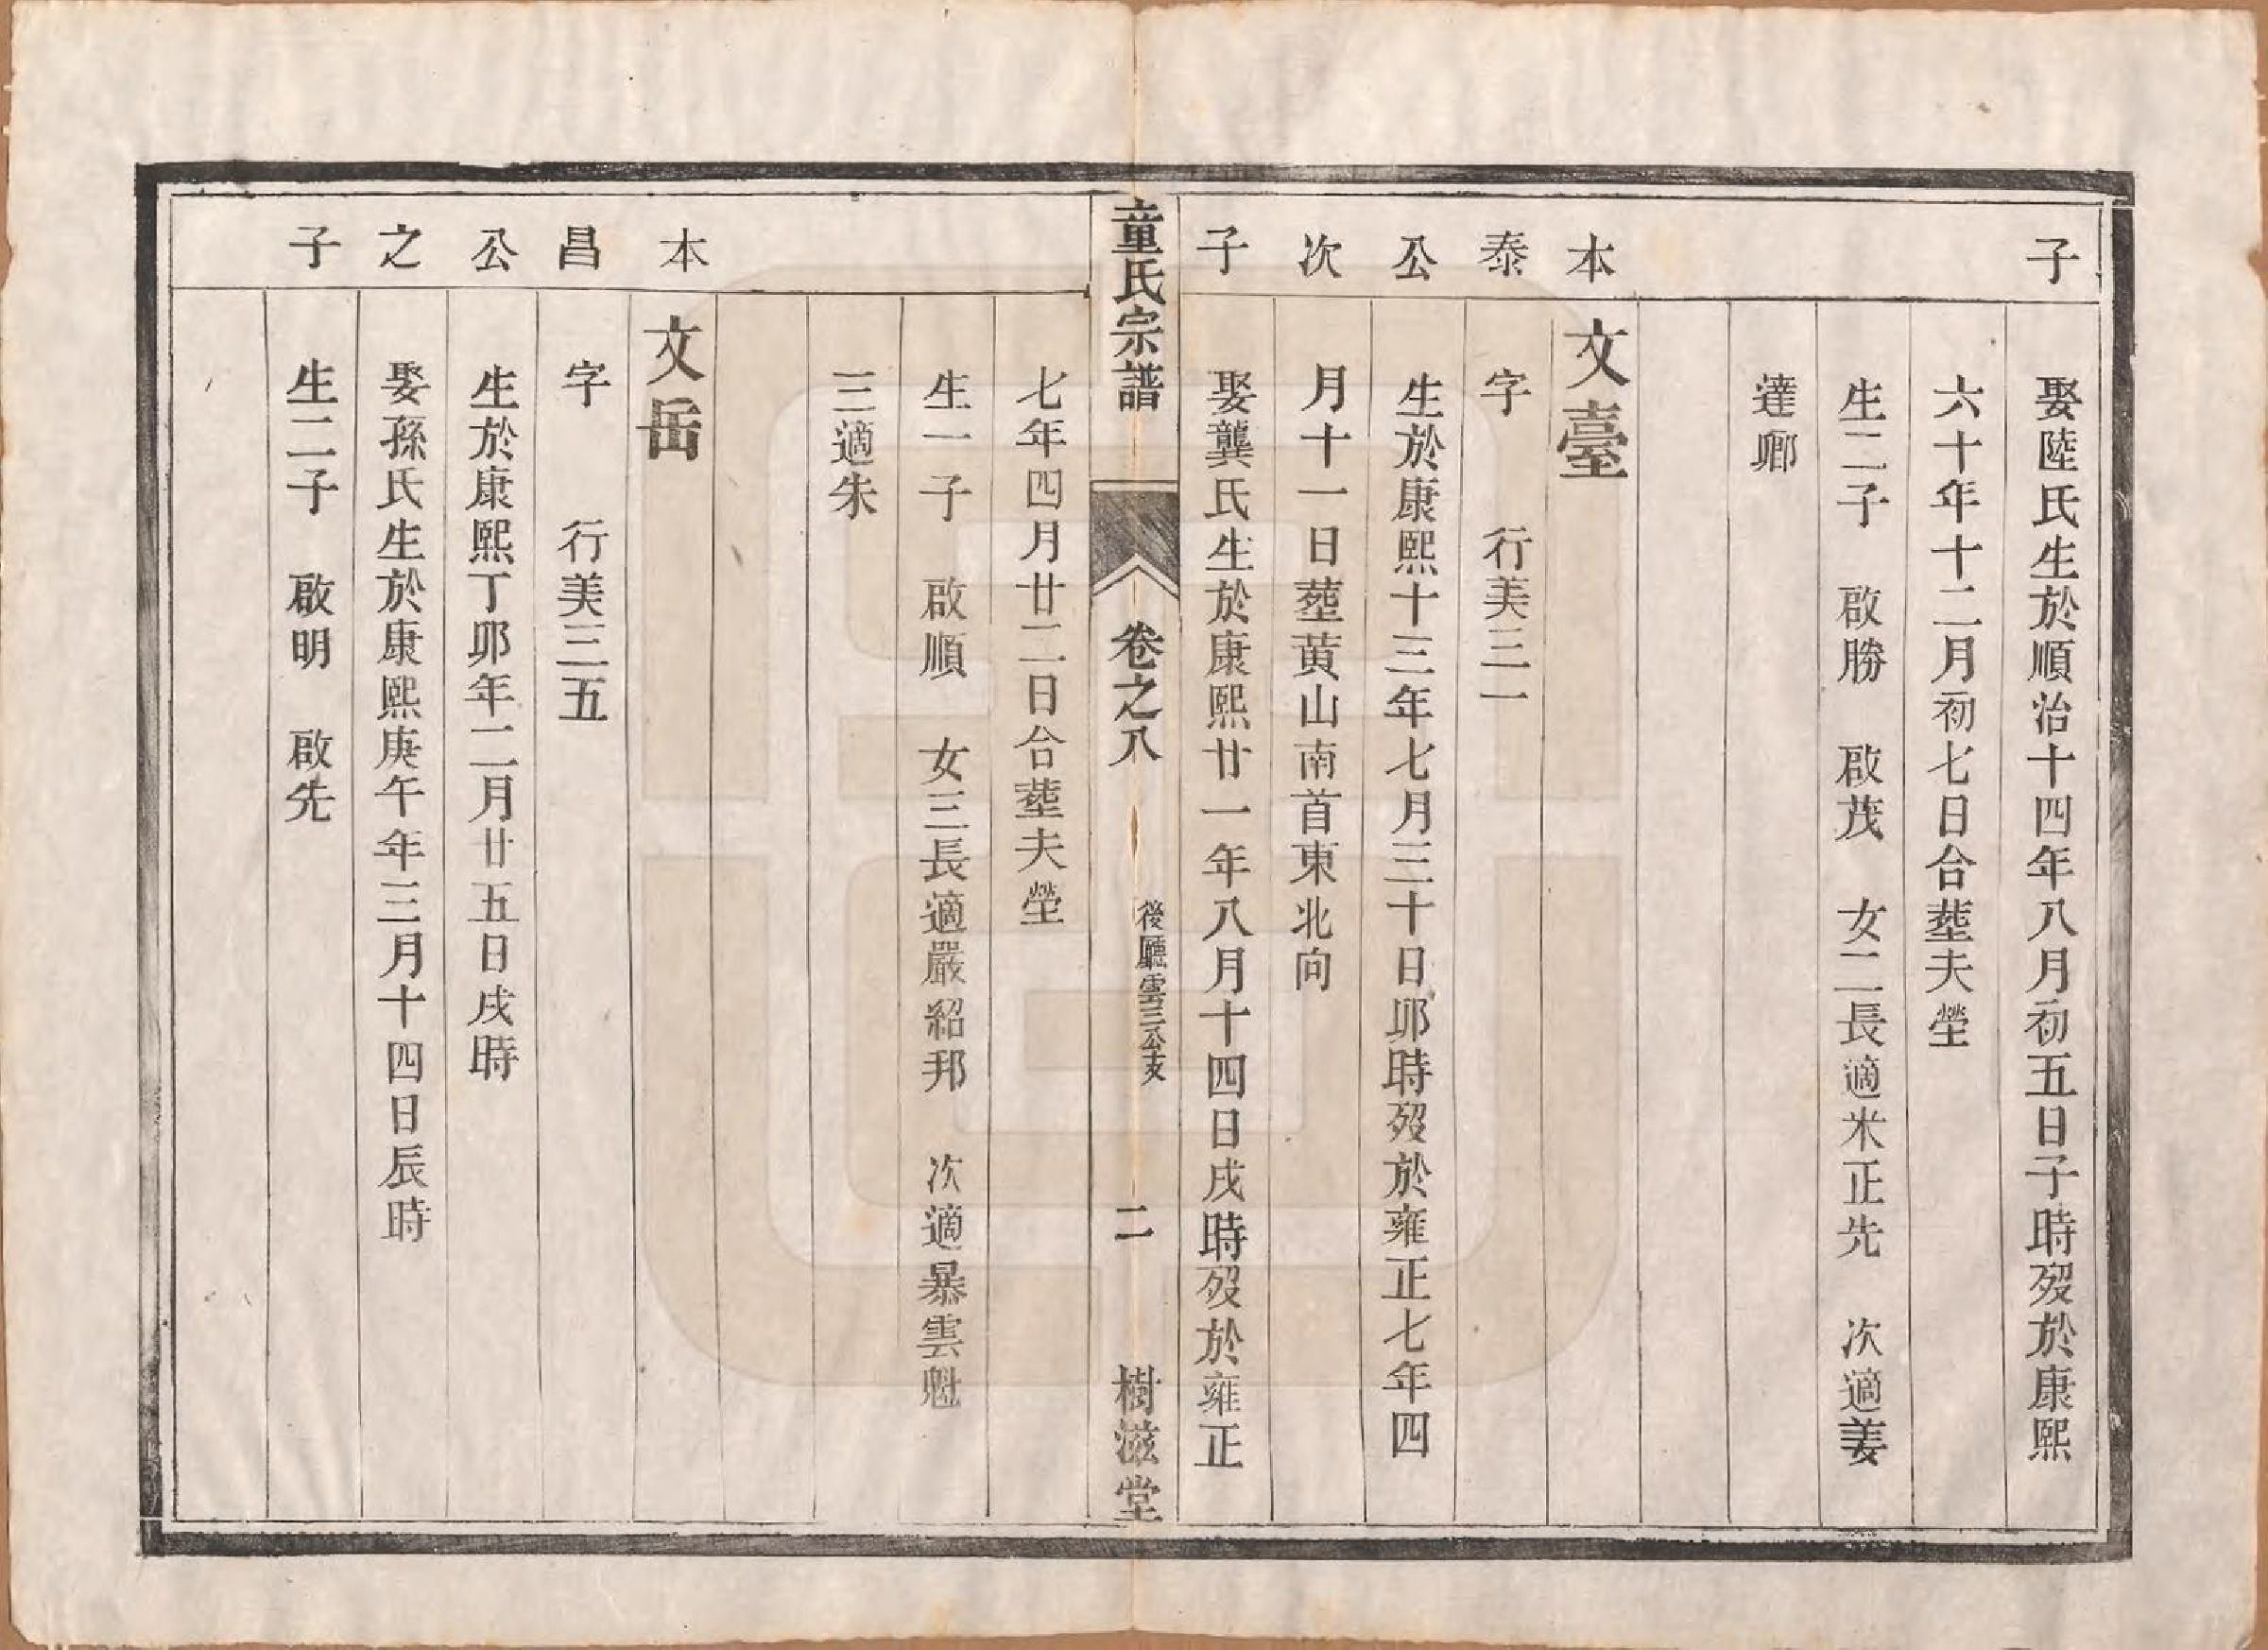 子
娶陸氏生於順治十四年八月初五日子時歿於康熙
六十年十二月初七日合塟夫塋
生二子　啟勝　啟茂　女二長適米正先　次適姜
達卿
本泰公次子
文臺
字　行美三一
生於康熙十三年七月三十日卯時歿於雍正七年四
月十一日塟黄山南首東北向
娶龔氏生於康熙廿一年八月十四日戌時歿於雍正
童氏宗譜
卷之八
後廳雲三公支
二
樹滋堂
七年四月廿二日合塟夫塋
生一子　啟順　女三長適嚴紹邦　次適暴雲魁
三適朱
本昌公之子
文岳
字　行美三五
生於康熙丁卯年二月廿五日戌時
娶孫氏生於康熙庚午年三月十四日辰時
生二子　啟明　啟先